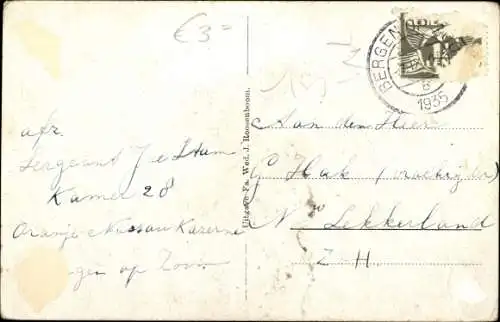 €3=
BERGEN
B
1935
afz.
Sergeant J
Kamer 28
Oranje Nassau Kazerne
op Zoom
Uitgave Fa. Wed. J. Roosenboom.
Aan den Heer
G Hak
Nw Lekkerland
Z H